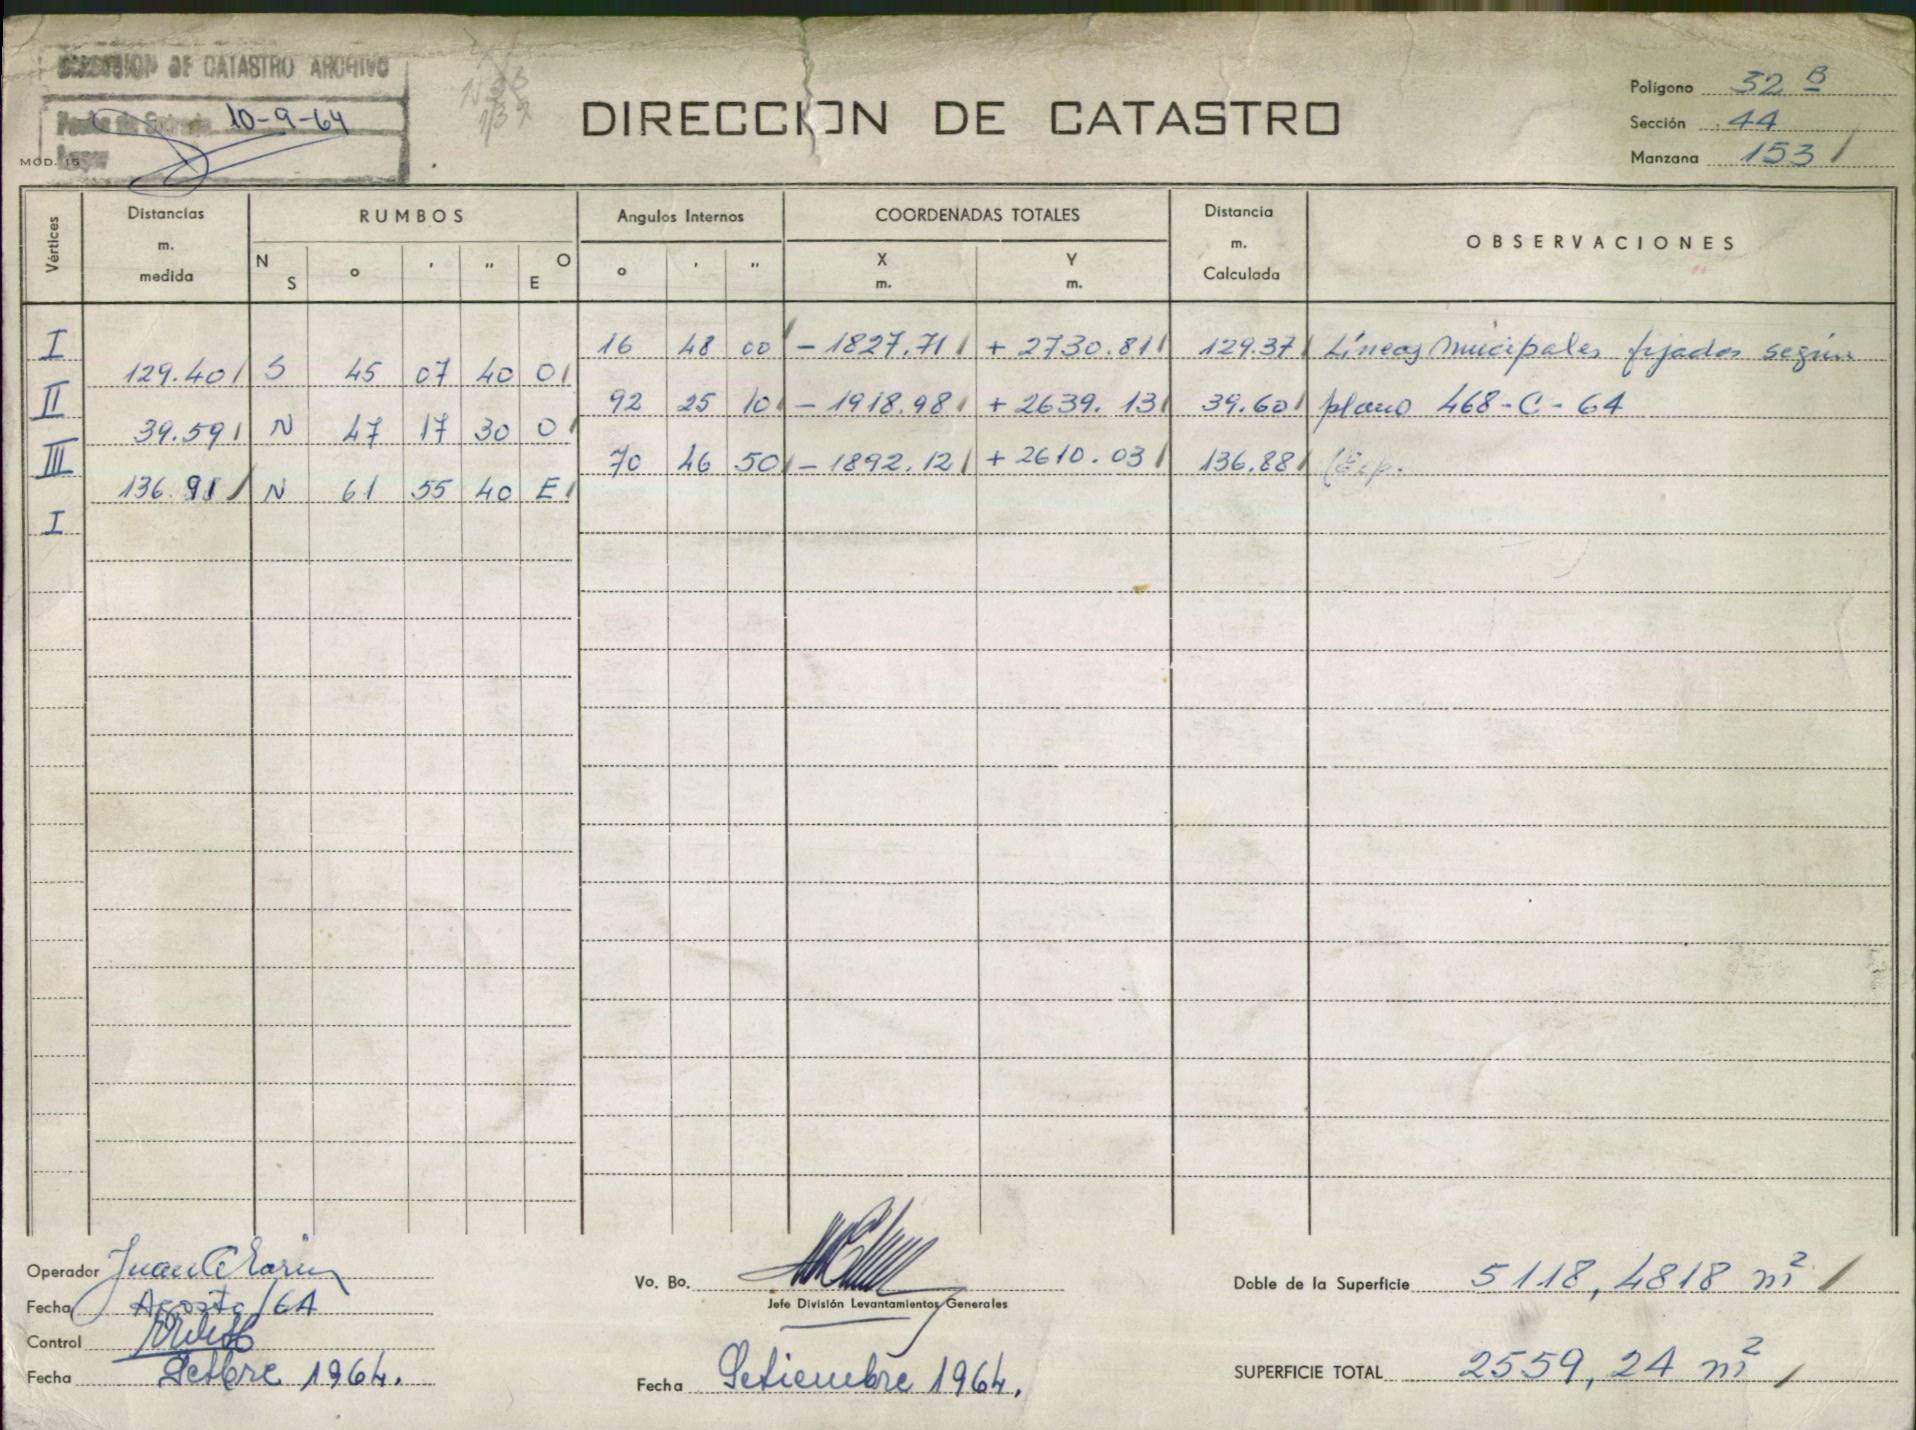 DIRECCION DE CATASTRO ARCHIVO
10-9-64
MOD. 15
DIRECCION DE CATASTRO
Polígono 32 B
Sección 44
Manzana 153
Vértices
Distancias m. medida
RUMBOS
N S ° ' " O E
Angulos Internos
° ' "
COORDENADAS TOTALES
X m. Y m.
Distancia m. Calculada
OBSERVACIONES
I 16 48 00 - 1827.71 + 2730.81 129.37 Líneas Municipales fijados según
129.40 S 45 07 40 O
II 92 25 10 - 1918.98 + 2639.13 39.60 plano 468-C-64
39.59 N 47 17 30 O
III 70 46 50 - 1892.12 + 2610.03 136.88 (Exp.
136.91 N 61 55 40 E
I
Operador
Fecha Agosto/64
Control
Fecha Setbre 1964.
Vo. Bo.
Jefe División Levantamientos Generales
Fecha Setiembre 1964.
Doble de la Superficie 5118,4818 m²
SUPERFICIE TOTAL 2559,24 m²